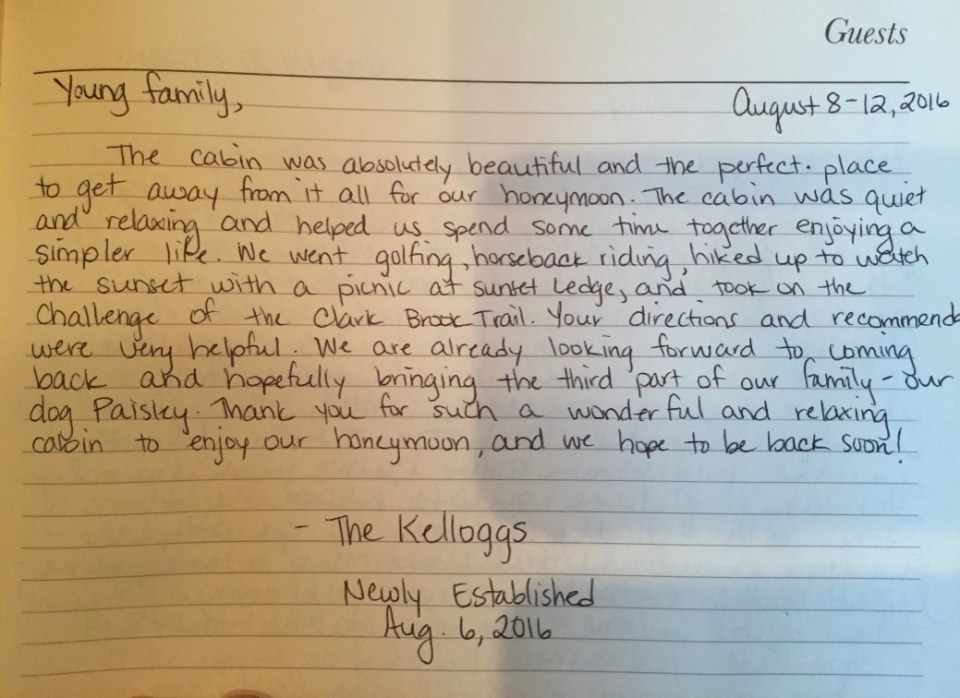 Guests
Young family,
August 8-12, 2016
The cabin was absolutely beautiful and the perfect. place
to get away from it all for our honeymoon. The cabin was quiet
and relaxing and helped us spend some time together enjoying a
simpler life. We went golfing, horseback riding, hiked up to watch
the sunset with a picnic at sunset Ledge, and took on the
Challenge of the Clark Brook Trail. Your directions and recommend
were very helpful. We are already looking forward to coming
back and hopefully bringing the third part of our family - our
dog Paisley. Thank you for such a wonderful and relaxing
cabin to enjoy our honeymoon, and we hope to be back soon!
- The Kelloggs
Newly Established
Aug. 6, 2016